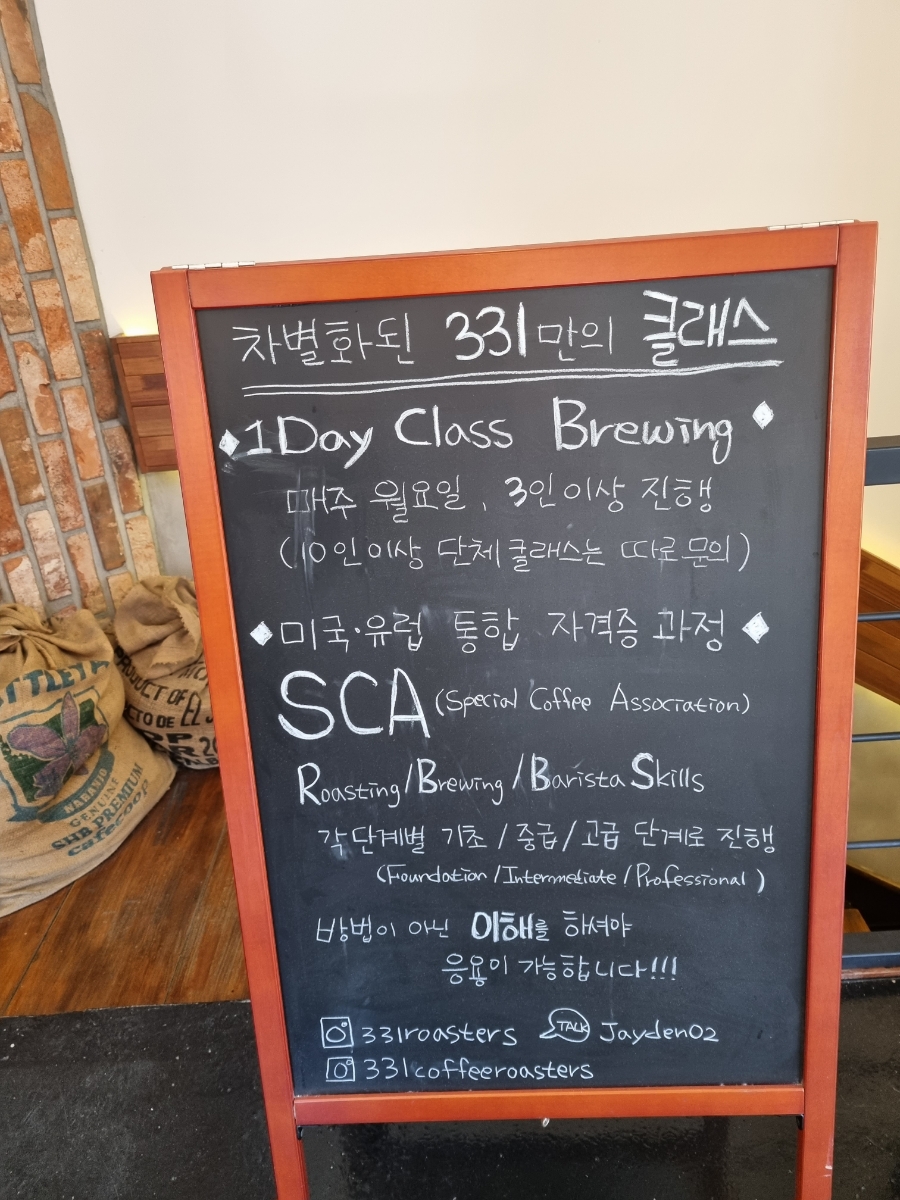 차별화된 331만의 클래스
◆1Day Class Brewing◆
매주 월요일, 3인이상 진행
(10인이상 단체클래스는 따로문의)
◆미국·유럽 통합 자격증 과정◆
SCA (Special Coffee Association)
Roasting/Brewing/Barista Skills
각 단계별 기초/중급/고급 단계로 진행
(Foundation/Intermediate/Professional)
방법이 아닌 이해를 하셔야
응용이 가능합니다!!!
331roasters TALK Jayden02
331coffeeroasters
NARANJO
GENUINE
SHB PREMIUM
cafecoop
PRODUCT OF